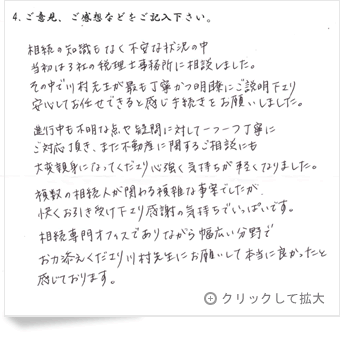 4.ご意見、ご感想などをご記入下さい。
相続の知識もなく不安な状況の中
当初は3社の税理士事務所に相談しました。
その中で川村先生が最も丁寧かつ明瞭にご説明下さり
安心してお任せできると感じ手続きをお願いしました。
進行中も不明な点や疑問に対して一つ一つ丁寧に
ご対応頂き、また不動産に関するご相談にも
大変親身になってくださり心強く気持ちが軽くなりました。
複数の相続人が関わる複雑な事案でしたが、
快くお引き受け下さり感謝の気持ちでいっぱいです。
相続専門オフィスでありながら幅広い分野で
お力添えくださり川村先生にお願いして本当に良かったと
感じております。
クリックして拡大